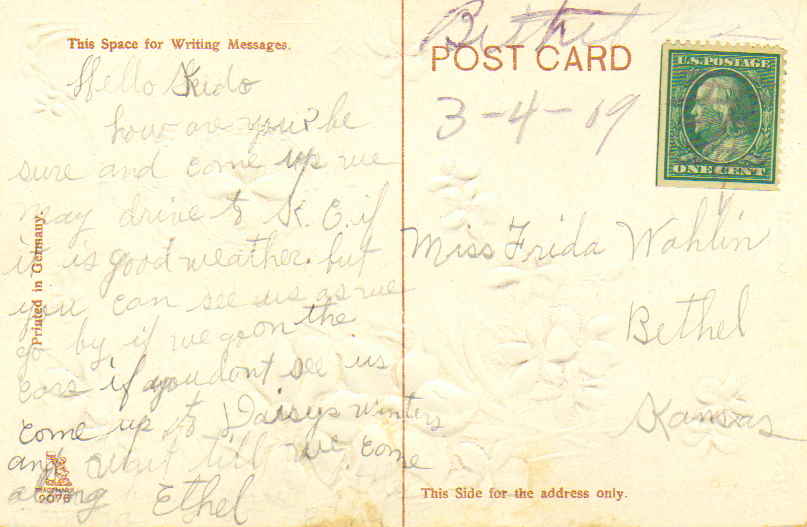 This Space for Writing Messages.
Hello Kido
how are you? be
sure and come up we
may drive to K. C. if
it is good weather. but
you can see us as we
go by if we go on the
cars if you dont see us
come up to Daisys Winters
and wait till we come
along Ethel
Printed in Germany.
9078
Bethel
POST CARD
3-4-09
U.S. POSTAGE
ONE CENT
Miss Frida Wahlin
Bethel
Kansas
This Side for the address only.